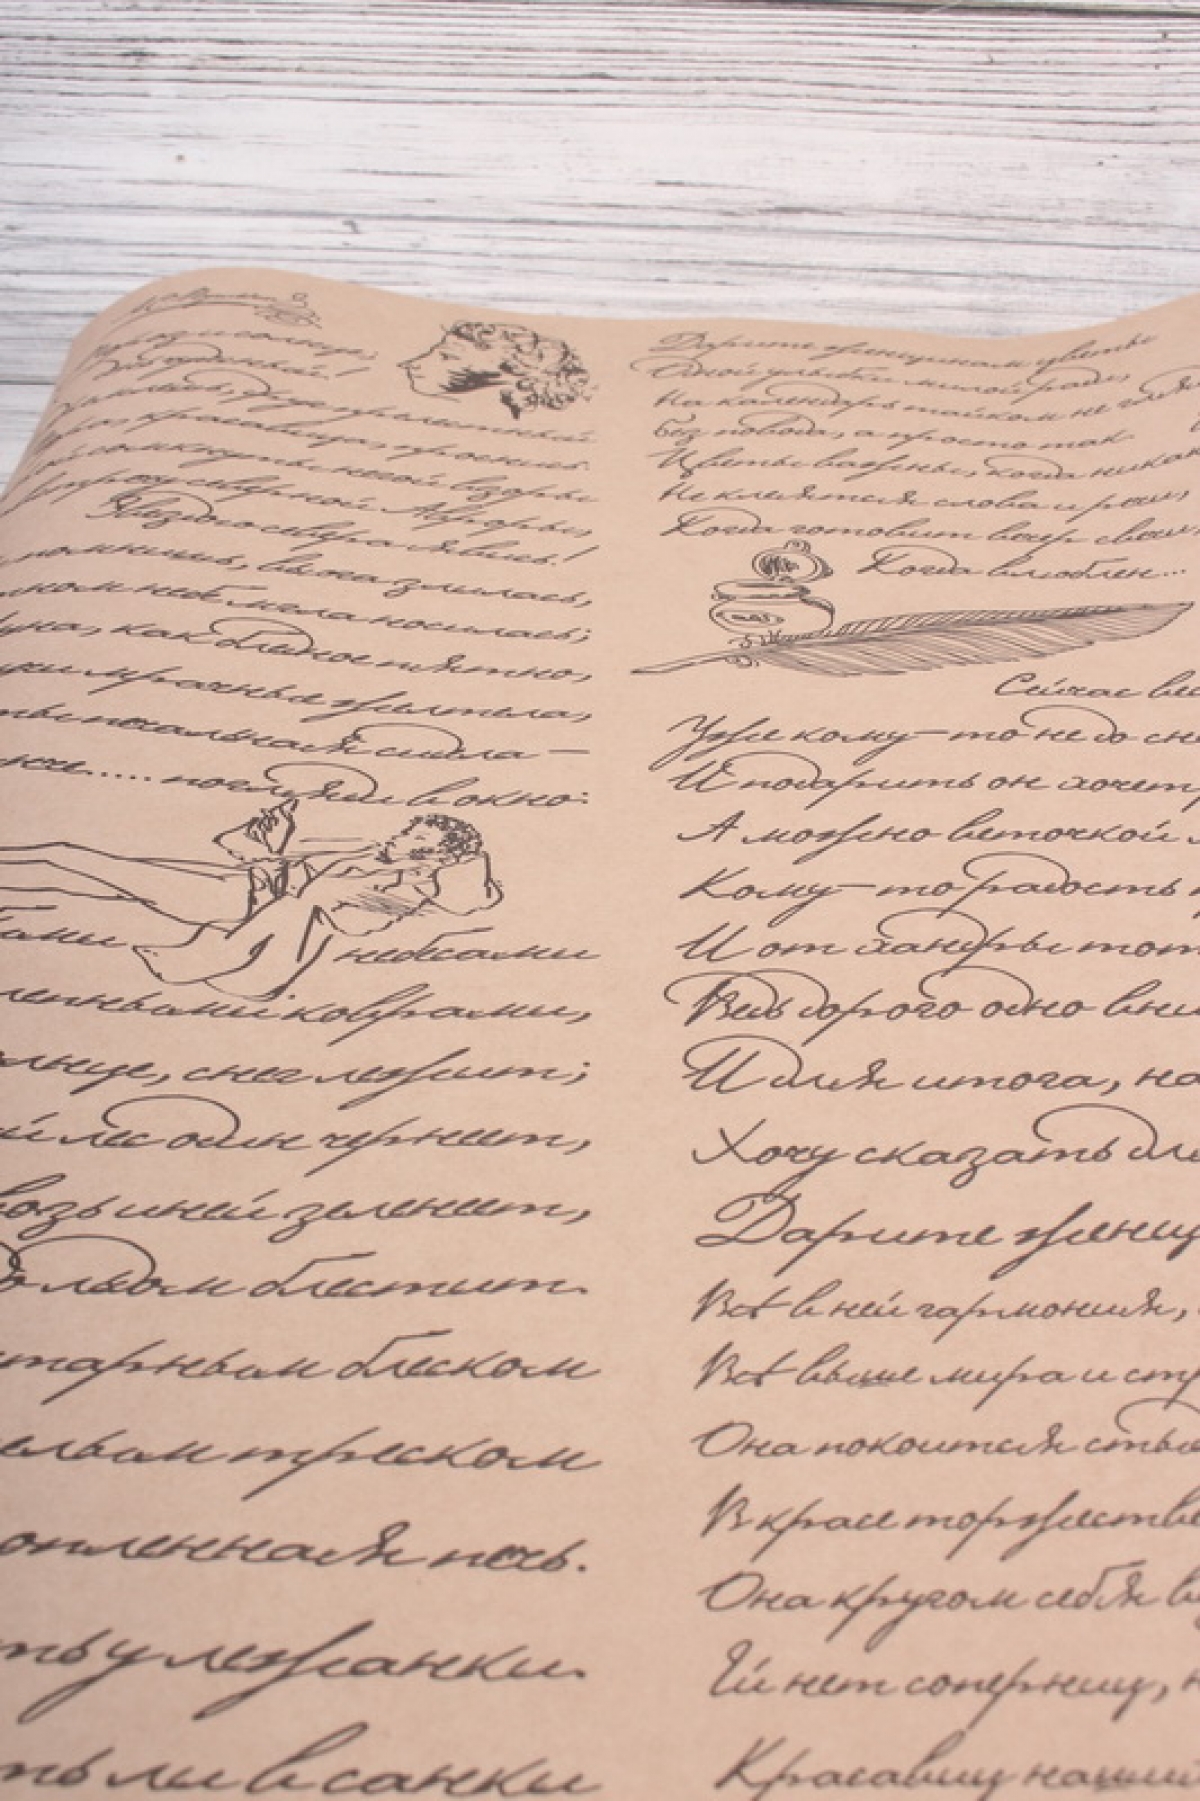 Мороз и солнце;
День чудесный!
дремлешь, друг прелестный
пора, красавица, проснись:
сомкнуты негой взоры
Навстречу северной Авроры,
Звездою севера явись!
помнишь, вьюга злилась,
мутном небе мгла носилась;
Луна, как бледное пятно,
тучи мрачные желтела,
ты печальная сидела —
нче..... погляди в окно:
голубыми небесами
лепными коврами,
олнце, снег лежит;
й лес один чернеет,
возь иней зеленеет,
одо льдом блестит.
нтарным блеском
елым треском
опленная печь.
ть у лежанки.
ть ли в санки
Дарите женщинам цветы
Одной улыбки милой ради,
На календарь тайком не глядя
Без повода, а просто так.
Цветы важны, когда никак
Не клеятся слова и речи,
Когда готовит вечер свечи,
Когда влюблен...
Сейчас ве
Уже кому-то не до сн
И подарить он хочет
А можно веточкой
Кому-то радость
И от хандры тот
Ведь дорого одно вни
И для итога, на
Хочу сказать для
Дарите женщ
Всё в ней гармония,
Всё выше мира и стр
Она покоится стыд
В красе торжестве
Она кругом себя вз
Ей нет соперниц, н
Красавиц наших